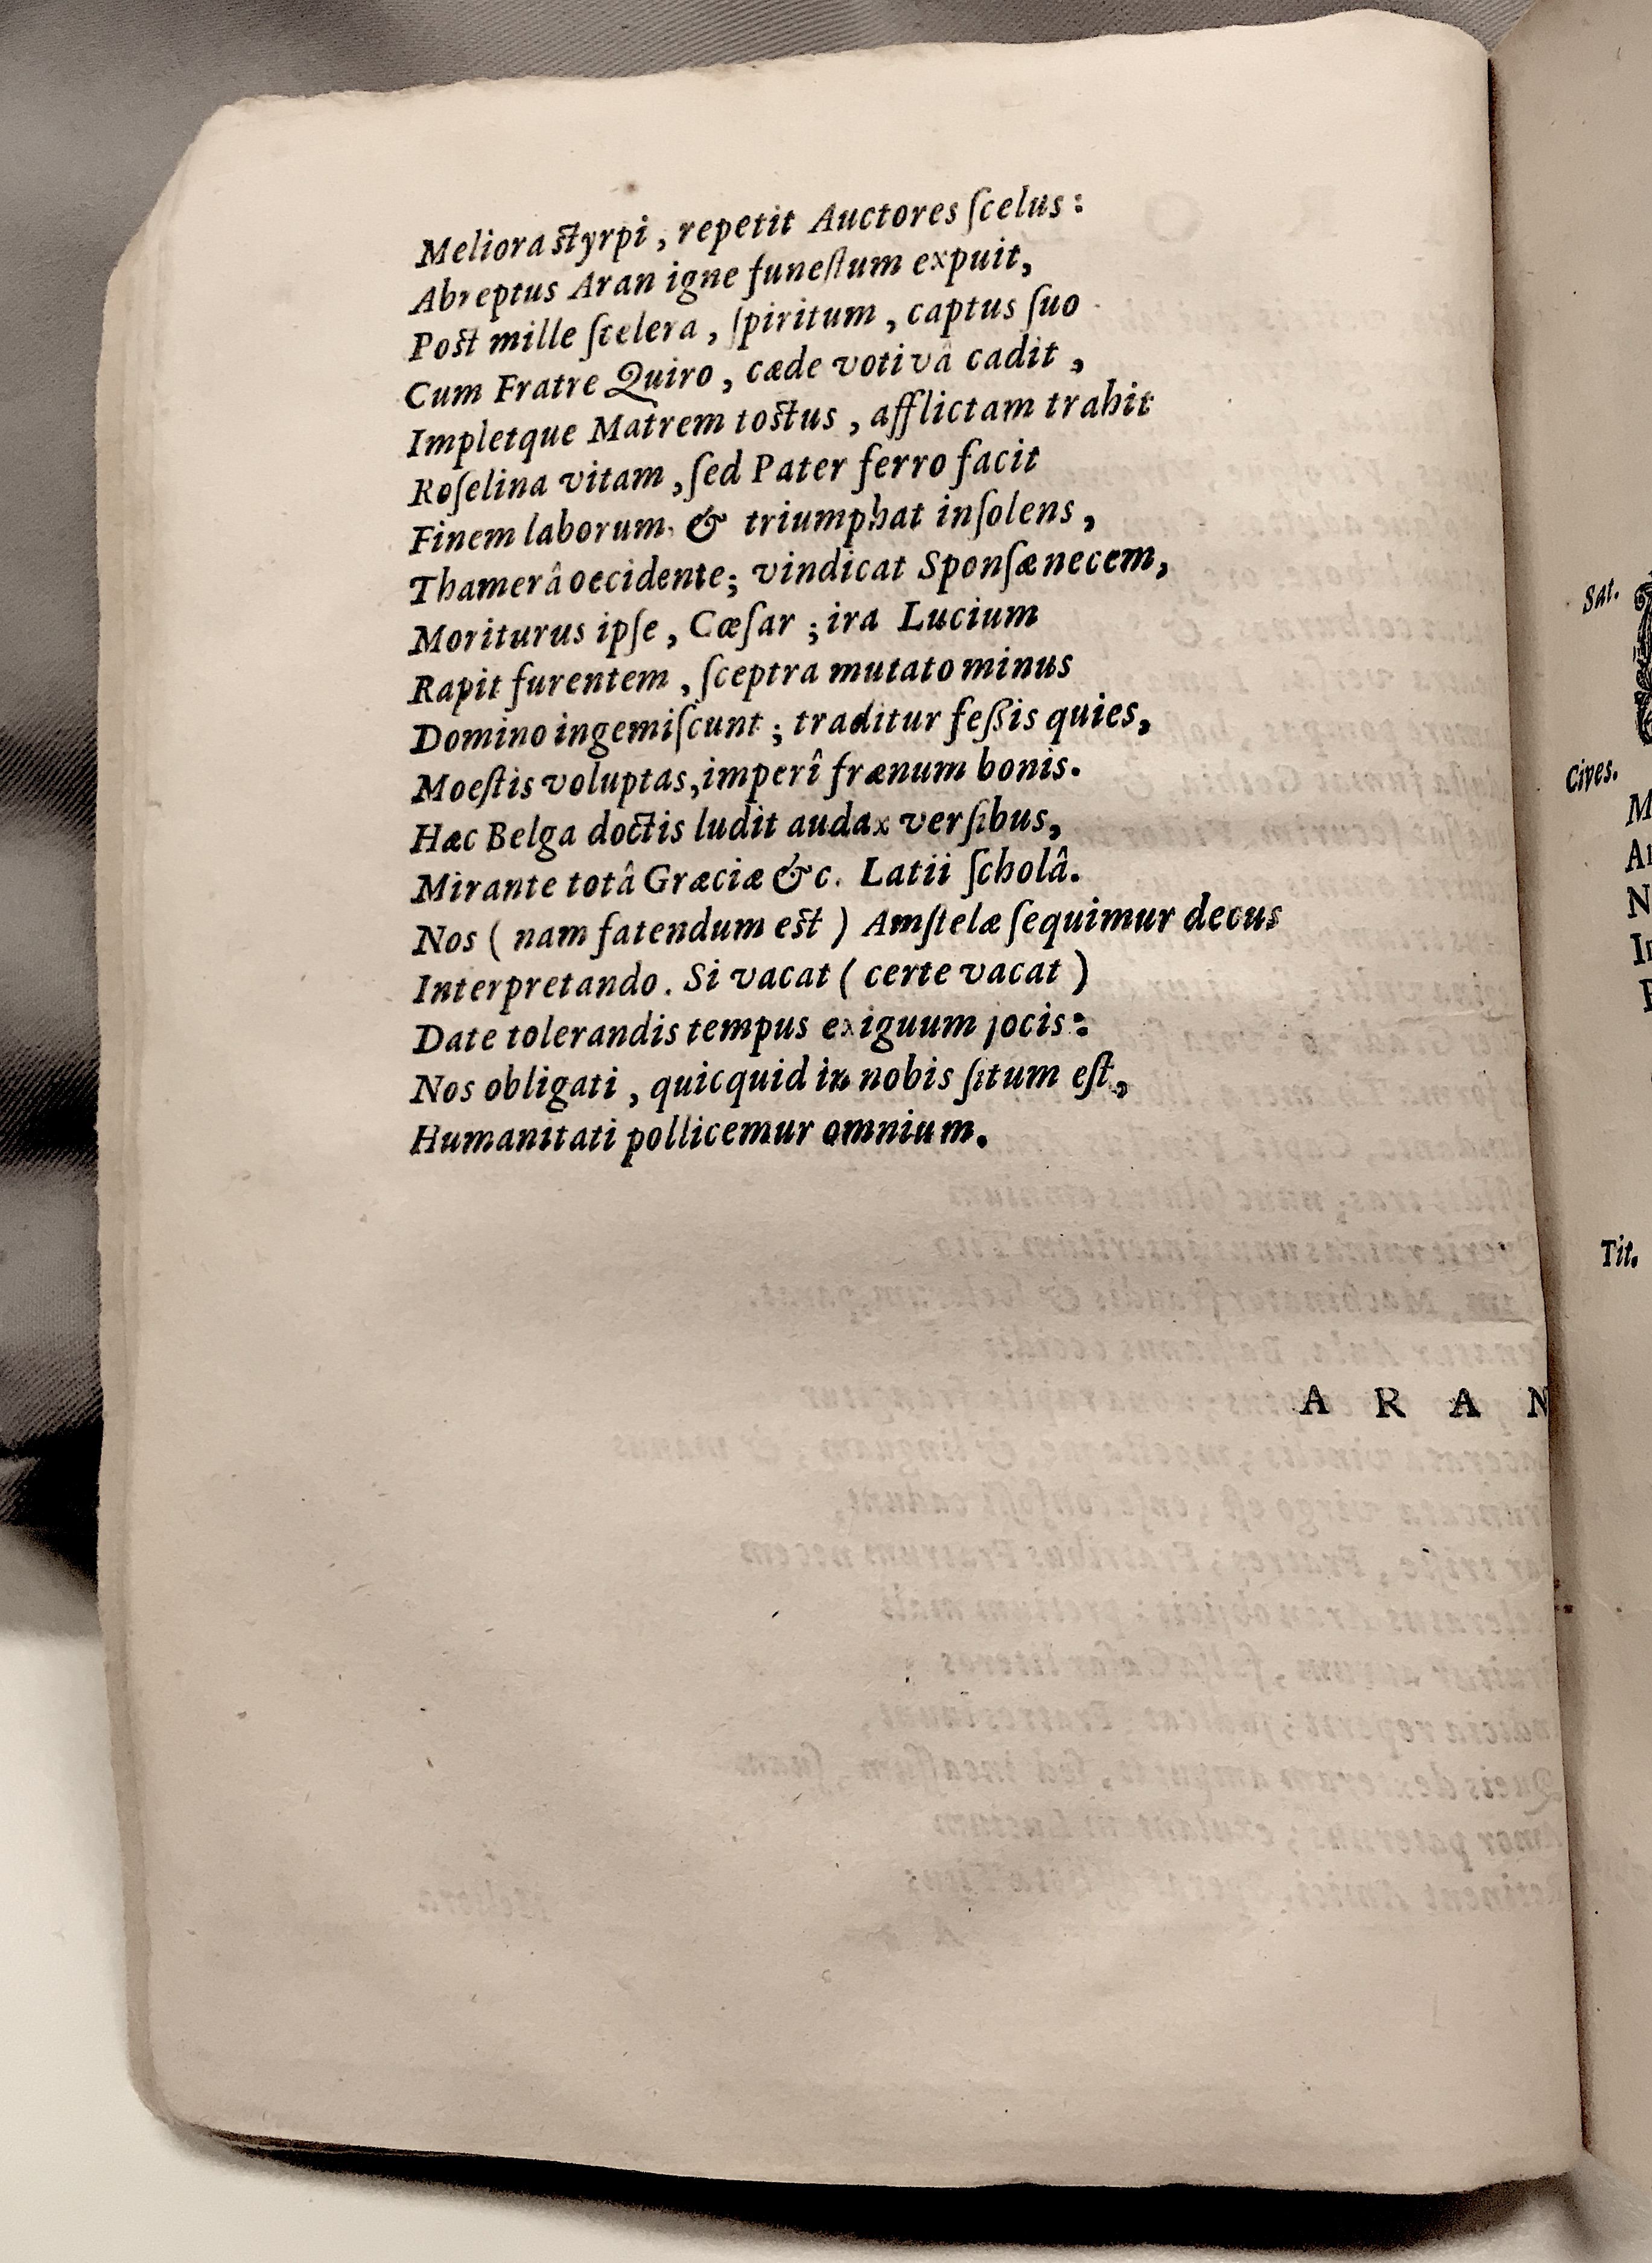 Meliora ſtyrpi, repetit Auctores ſcelus:
Abreptus Aran igne funeſtum expuit,
Poſt mille ſcelera, ſpiritum, captus ſuo
Cum Fratre Quiro, cæde votivâ cadit,
Impletque Matrem toſtus, afflictam trahit
Roſelina vitam, ſed Pater ferro facit
Finem laborum. & triumphat inſolens,
Thamerâ occidente; vindicat Sponſæ necem,
Moriturus ipſe, Cæſar; ira Lucium
Rapit furentem, ſceptra mutato minus
Domino ingemiſcunt; traditur feſſis quies,
Moeſtis voluptas, imperî frænum bonis.
Hæc Belga doctis ludit audax verſibus,
Mirante totâ Græciæ &c. Latii ſcholâ.
Nos (nam fatendum eſt) Amſtelæ ſequimur decus
Interpretando. Si vacat (certe vacat)
Date tolerandis tempus exiguum jocis:
Nos obligati, quicquid in nobis ſitum eſt,
Humanitati pollicemur omnium.
ARAN
Sat.
Cives.
Tit.